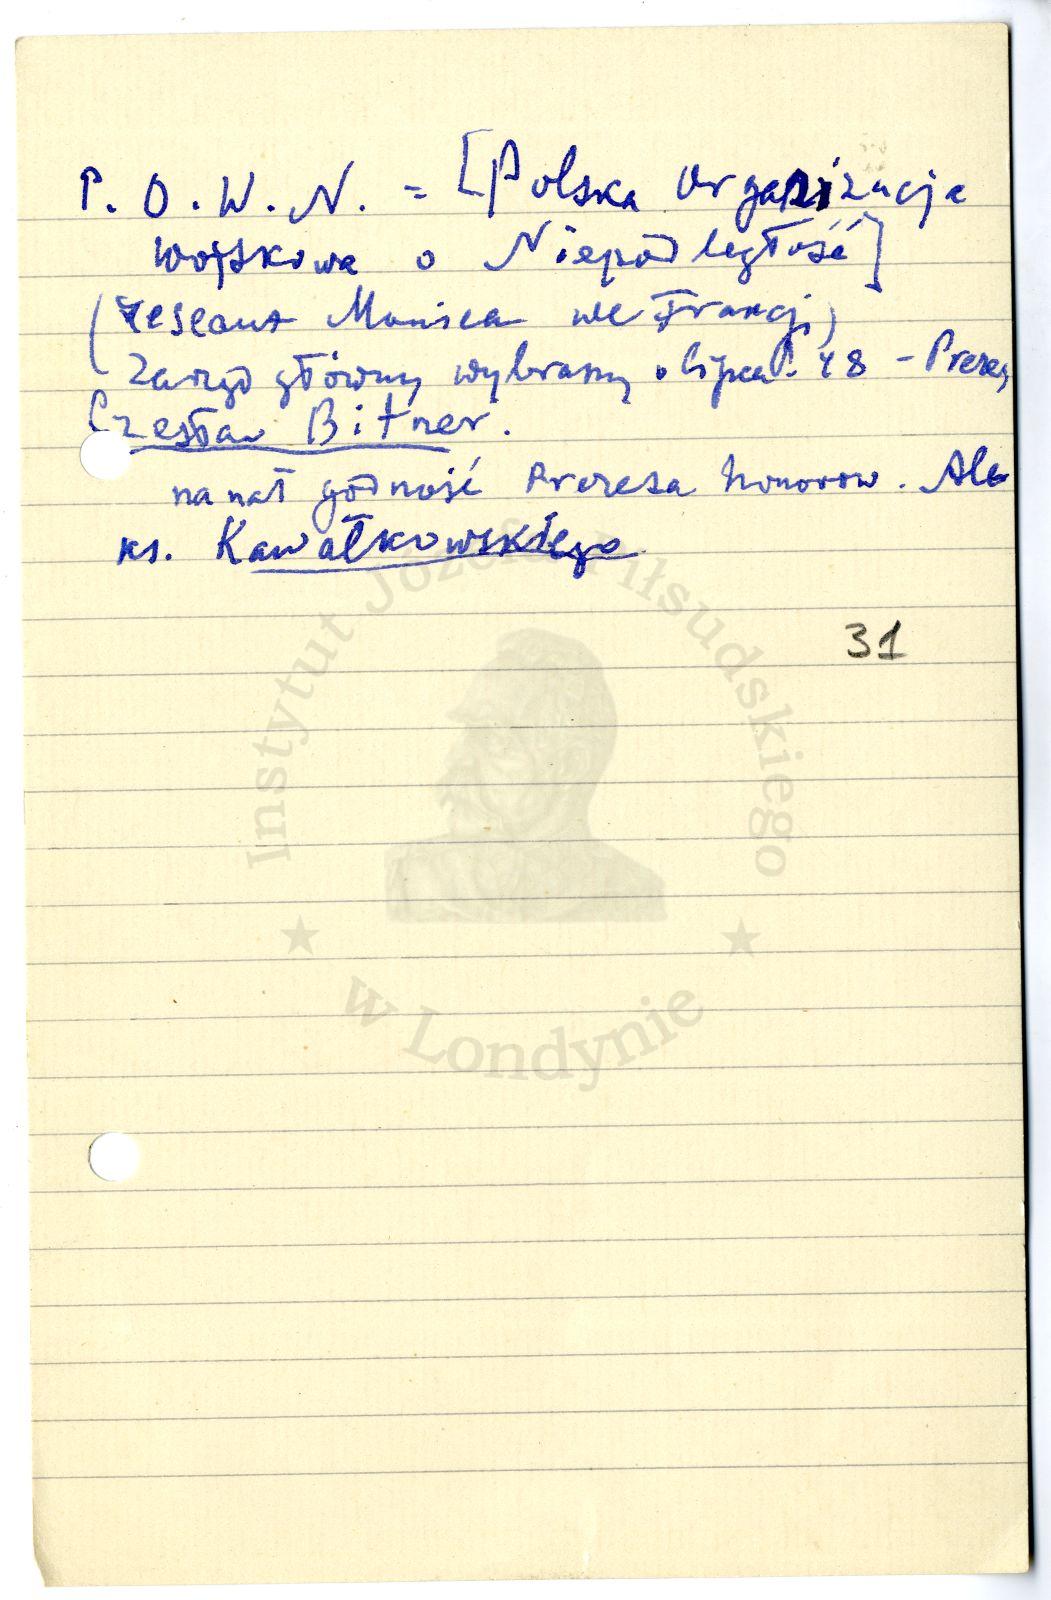 P.O.W.N. = [Polska Organizacja
Wojskowa o Niepodległość]
(Reseaux Monica we Francji)
Zarząd główny wybrany lipca 48 – Prezes
Czesław Bitner.
nanał godność Prezesa honorow. Ale
ks. Kawałkowskiego
31
Instytut Józefa Piłsudskiego
w Londynie